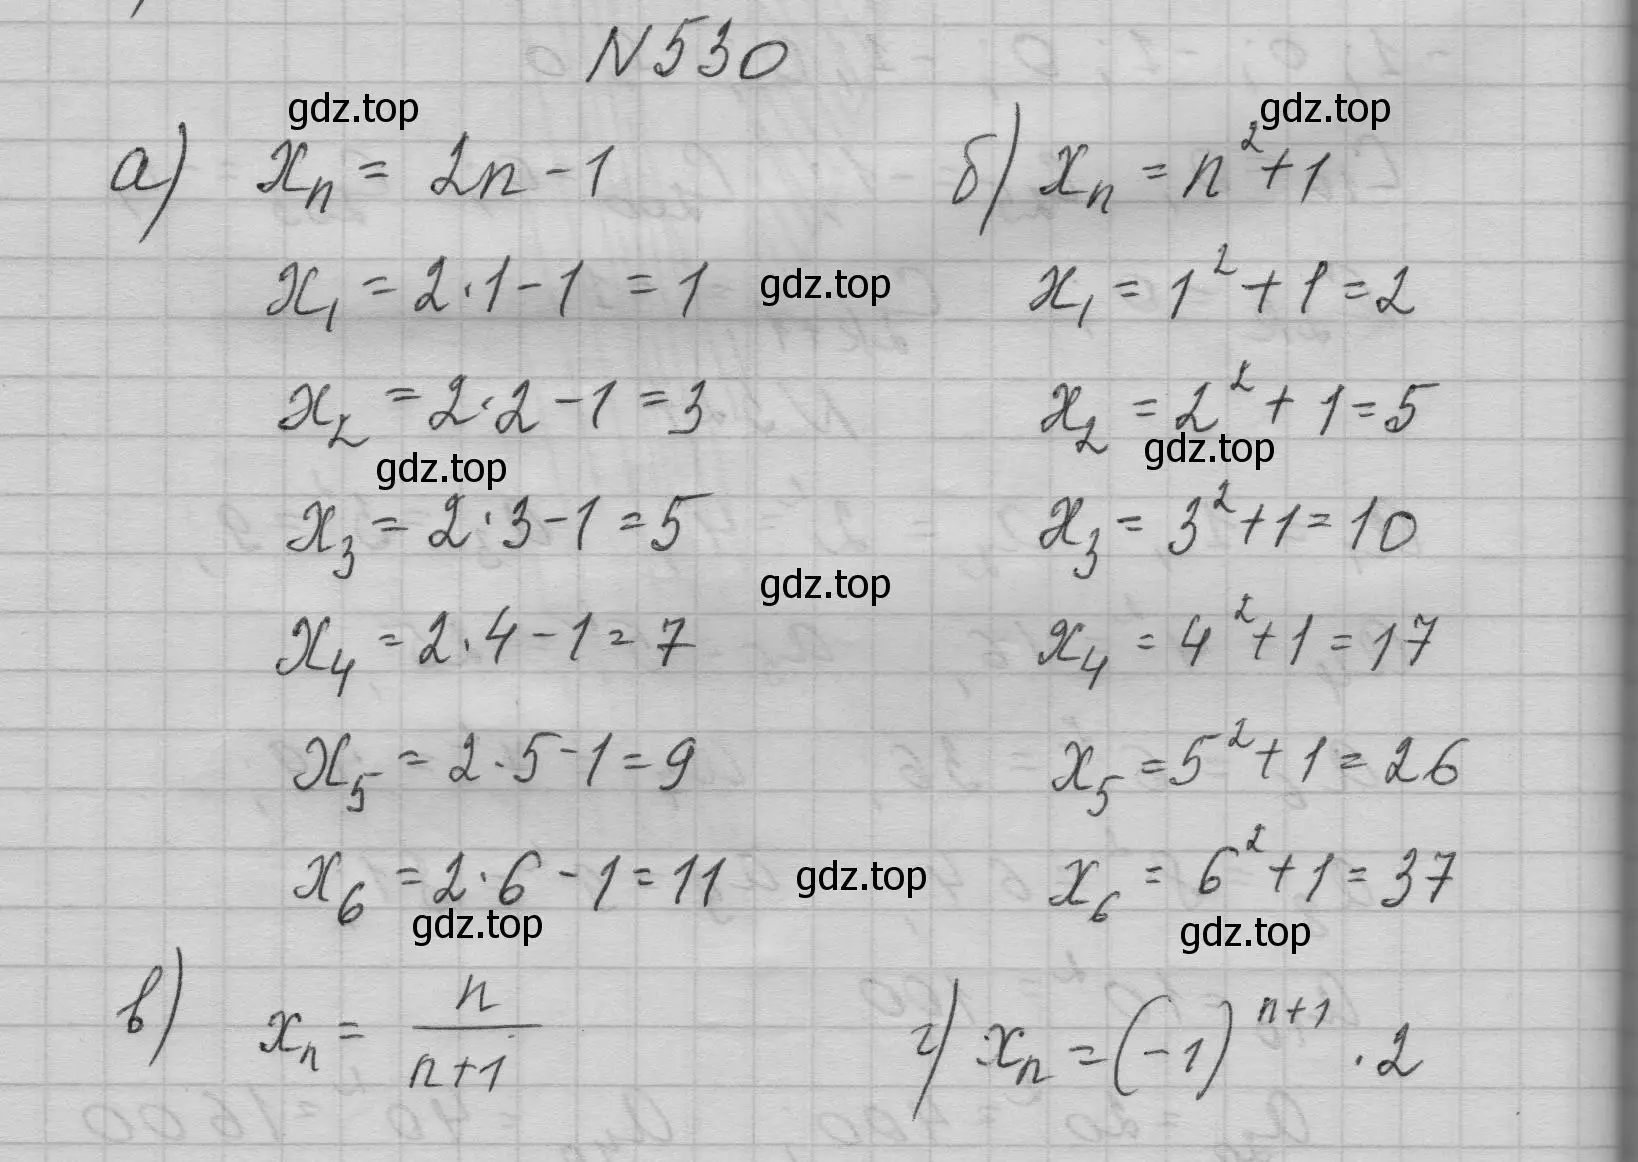 N 530
gdz.top gdz.top
а) xₙ = 2n - 1 б) xₙ = n² + 1
x₁ = 2·1 - 1 = 1 gdz.top x₁ = 1² + 1 = 2
x₂ = 2·2 - 1 = 3 x₂ = 2² + 1 = 5
gdz.top gdz.top
x₃ = 2·3 - 1 = 5 x₃ = 3² + 1 = 10
gdz.top
x₄ = 2·4 - 1 = 7 x₄ = 4² + 1 = 17
x₅ = 2·5 - 1 = 9 x₅ = 5² + 1 = 26
x₆ = 2·6 - 1 = 11 gdz.top x₆ = 6² + 1 = 37
gdz.top gdz.top
в) xₙ = n/(n+1) г) xₙ = (-1)ⁿ⁺¹ · 2